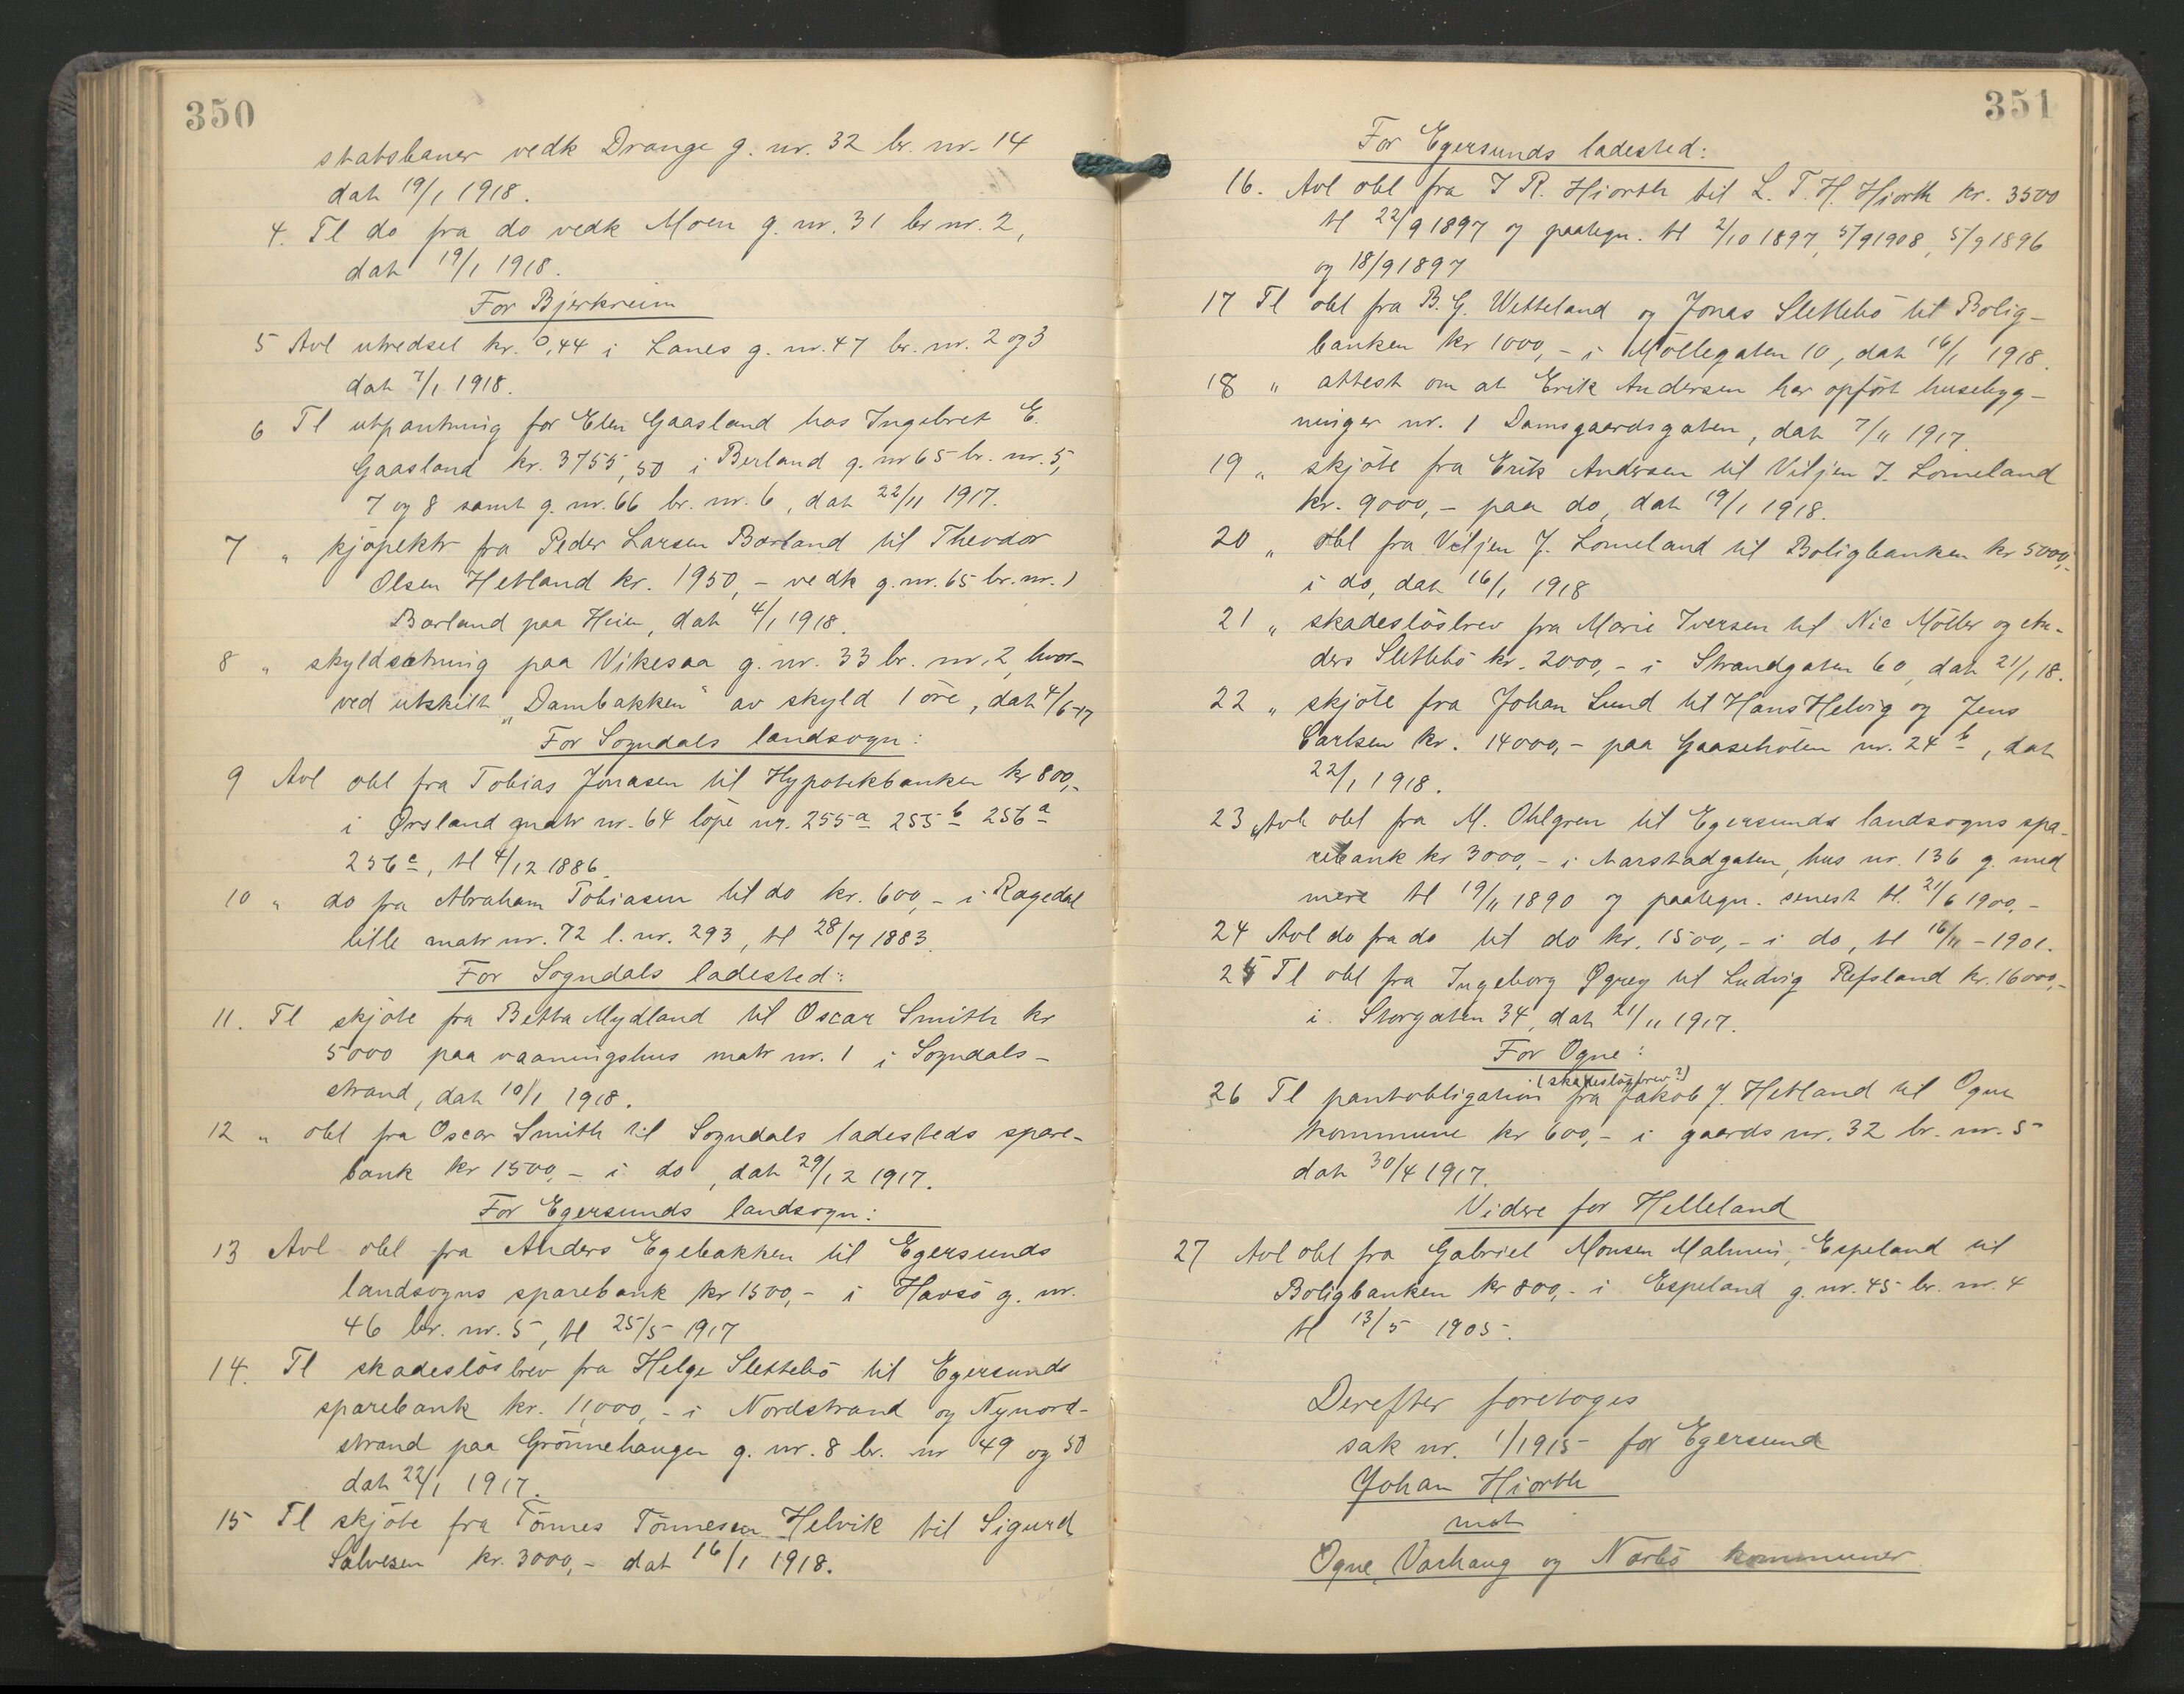 350
statsbaner vedk Drange g. nr. 32 br. nr. 14
dat 19/1 1918.
4. Tl do fra do vedk Moen g. nr. 31 br nr. 2,
dat 19/1 1918.
For Bjerkreim
5 Avl utredsel kr. 0,44 i Lanes g. nr. 47 br. nr. 2 og 3
dat 7/1 1918.
6 Tl utpantning for Elen Gaasland hos Ingebret E.
Gaasland kr. 3755,50 i Berland g. nr 65 br. nr. 5,
7 og 8 samt g. nr. 66 br. nr. 6, dat 22/11 1917.
7 " kjöpektr fra Peder Larsen Borland til Theodor
Olsen Hetland kr. 1950,- vedk g. nr. 65 br. nr. 1
Borland paa Heien, dat 4/1 1918.
8 " skyldsætning paa Vikesaa g. nr. 33 br. nr. 2, hvor-
ved utskilt "Dambakken" av skyld 1 öre, dat 4/6-17
For Sogndals landsogn:
9 Avl obl fra Tobias Jonasen til Hypotekbanken kr 800,-
i Ørsland matr nr. 64 löpe nr. 255a 255b 256a
256c, tl 4/12 1886.
10 " do fra Abraham Tobiasen til do kr. 600,- i Rægedal
lille matr nr. 72 l. nr. 293, tl 28/7 1883.
For Sogndals ladested:
11. Tl skjöte fra Betta Mydland til Oscar Smith kr
5000 paa vaaningshus matr nr. 1 i Sogndals-
strand, dat 10/1 1918.
12 " obl fra Oscar Smith til Sogndals ladesteds spare-
bank kr 1500,- i do, dat 29/12 1917.
For Egersunds landsogn:
13 Avl obl fra Anders Egebakken til Egersunds
landsogns sparebank kr 1500,- i Havsö g. nr.
46 br. nr. 5, tl 25/5 1917
14. Tl skadeslösbrev fra Helge Slettebö til Egersunds
sparebank kr. 11,000,- i Nordstrand og Nynord-
strand paa Grönnehaugen g. nr. 8 br. nr 49 og 50
dat 22/1 1917.
15 Tl skjöte fra Tönnes Tönnesen Helvik til Sigurd
Salvesen kr. 3000,- dat 16/1 1918.
351
For Egersunds ladested:
16. Avl obl fra J R. Hiorth til L. T. H. Hiorth kr. 3500
tl 22/9 1897 og paategn. tl 2/10 1897, 5/9 1908, 5/9 1896
og 18/9 1897
17 Tl obl fra B. G. Wetteland og Jonas Slettebö til Bolig-
banken kr 1000,- i Möllegaten 10, dat 16/1 1918.
18 " attest om at Erik Andersen har opfört husebyg-
ninger nr. 1 Damsgaardsgaten, dat 7/11 1917.
19 " skjöte fra Erik Andersen til Viljen J. Lomeland
kr. 9000,- paa do, dat 19/1 1918.
20 " obl fra Viljen J. Lomeland til Boligbanken kr 5000,-
i do, dat 16/1 1918
21 " skadeslösbrev fra Marie Iversen til Nic Möller og An-
ders Slettebö kr. 2000,- i Strandgaten 60, dat 21/1 18.
22 " skjöte fra Johan Lund til Hans Helvig og Jens
Carlsen kr. 14000,- paa Gaaseholen nr. 24 b, dat
22/1 1918.
23 Avl obl fra M. Ohlgren til Egersunds landsogns spa-
rebank kr 3000,- i Aarstadgaten, hus nr. 136 g. med
mere tl 19/11 1890 og paategn. senest tl. 21/6 1900,-
24 Avl do fra do til do kr. 1500,- i do, tl 16/11 - 1901.
25 Tl obl fra Ingeborg Øgrey til Ludvig Refsland kr. 16000,-
i. Storgaten 34, dat 21/11 1917.
For Ogne:
(skadeslösbrev?)
26 Tl pantobligation fra Jakob J. Hetland til Ogne
kommune kr 600,- i gaards nr. 32 br. nr. 5
dat 30/4 1917.
Videre for Helleland
27 Avl obl fra Gabriel Monsen Malmin, Espeland til
Boligbanken kr 800,- i Espeland g. nr. 45 br. nr. 4
tl 13/5 1905.
Derefter foretoges
sak nr. 1/1915 for Egersund
Johan Hiorth
mot
Ogne, Varhaug og Nærbö kommuner